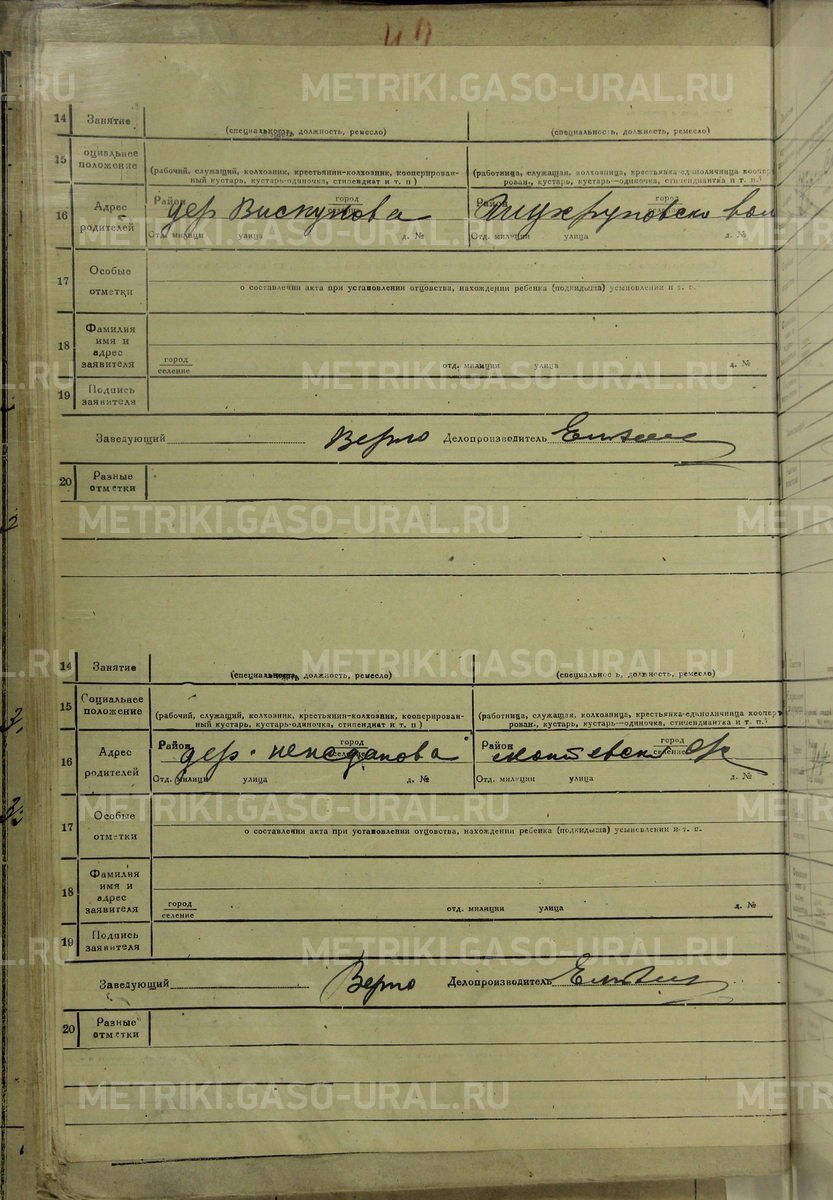 METRIKI.GASO-URAL.RU
14 Занятие
(специальность, должность, ремесло) (специальность, должность, ремесло)
15 оциальное положение
(рабочий, служащий, колхозник, крестьянин-колхозник, кооперирован-
ный кустарь, кустарь-одиночка, стипендиат и т. п)
(работница, служащая, колхозница, крестьянка-единоличница коопер
рован, кустарь, кустарь—одиночка, стипендиантка и т. п.)
16 Адрес родителей
Район город
дер Вискунова
Отд. милиции улица д. №
Район город
вол
Отд. милиции улица д. №
17 Особые отметки
о составлении акта при установлении отцовства, нахождении ребенка (подкидыша) усыновлении и т. п.
18 Фамилия имя и адрес заявителя
город
селение
отд. милиции улица д. №
19 Подпись заявителя
METRIKI.GASO-URAL.RU
Заведующий Верно Делопроизводитель
20 Разные отметки
METRIKI.GASO-URAL.RU
14 Занятие
(специальность, должность, ремесло) (специальность, должность, ремесло)
15 Социальное положение
(рабочий, служащий, колхозник, крестьянин-колхозник, кооперирован-
ный кустарь, кустарь-одиночка, стипендиат и т. п)
(работница, служащая, колхозница, крестьянка-единоличница коопер
рован, кустарь, кустарь—одиночка, стипендиантка и т. п.)
16 Адрес родителей
Район город селение
дер.
Отд. милиции улица д. №
Район город селение
Отд. милиции улица д. №
17 Особые отметки
о составлении акта при установлении отцовства, нахождении ребенка (подкидыша) усыновлении и т. п.
18 Фамилия имя и адрес заявителя
город
селение
отд. милиции улица д. №
19 Подпись заявителя
METRIKI.GASO-URAL.RU
Заведующий Верно Делопроизводитель
20 Разные отметки
METRIKI.GASO-URAL.RU